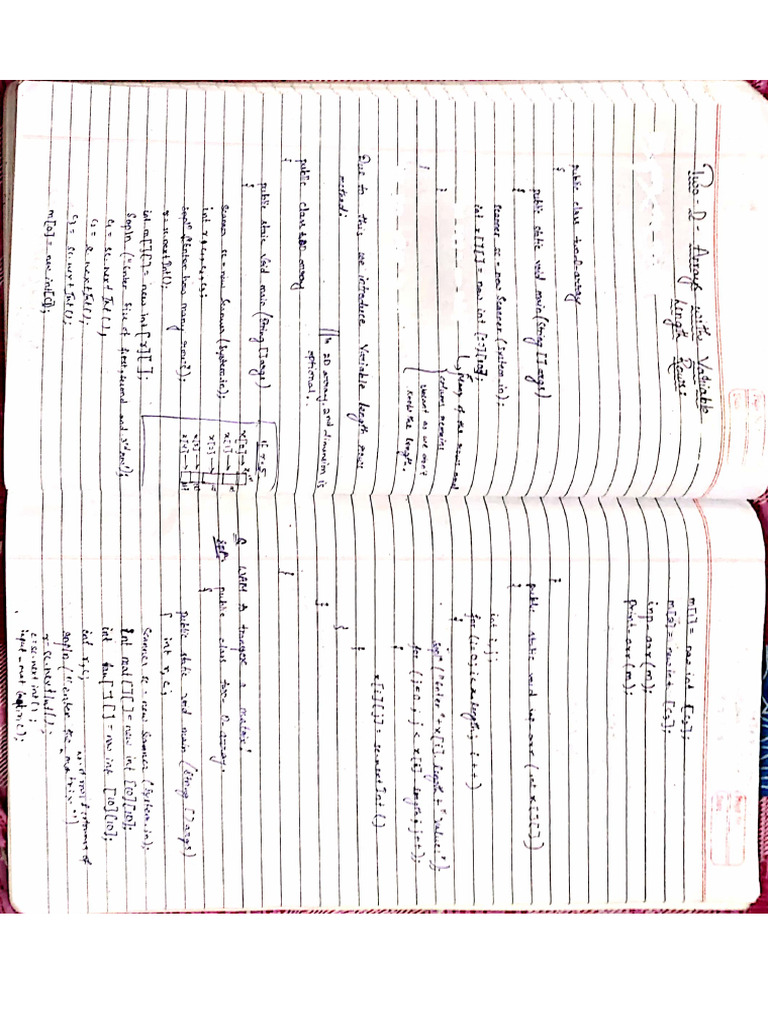 Two-D- Arrays with Variable
Length Rows:
public class two-D-array
{
public static void main(String [] args)
{
Scanner sc = new Scanner (System.in);
int x[][] = new int [50][100];
Many of the rows and
column remains
vacant as we don't
know the length.
}
}
Due to this we introduce Variable length rows
method:
|| In 2D array, 2nd dimension is
optional..
public class 2D array
{
public static void main (String [] args)
{
Scanner sc = new Scanner (System.in);
int r, c1, c2, c3;
sopln ("Enter how many rows");
r = sc.nextInt();
int m[][] = new int [r][];
Sopln ("Enter size of first, second and 3rd row");
c1 = sc.nextInt();
c2 = sc.nextInt();
c3 = sc.nextInt();
m[0] = new int [c1];
if r=5
x[0] →
x[1] →
x[2] →
x[3] →
x[4] →
m[1] = new int [c2];
m[2] = new int [c3];
inp-arr (m);
print-arr (m);
}
public static void inp-arr (int x[][])
{
int i, j;
for (i=0; i<x.length; i++)
{
sop ("Enter "+x[i].length+" values");
for (j=0; j < x[i].length; j++);
{
x[i][j] = sc.nextInt()
}
}
}
}
Q WAM to transpose a matrix!
Sol:- public class two-D-array.
{
public static void main (String [] args)
{ int r, c;
Scanner sc = new Scanner (System.in);
int mat[][] = new int [10][10];
int [][] = new int [10][10];
int r, c;
sopln ("Enter the rows and columns of
matrix")
r = sc.nextInt();
c = sc.nextInt();
input-mat (mat, r, c);